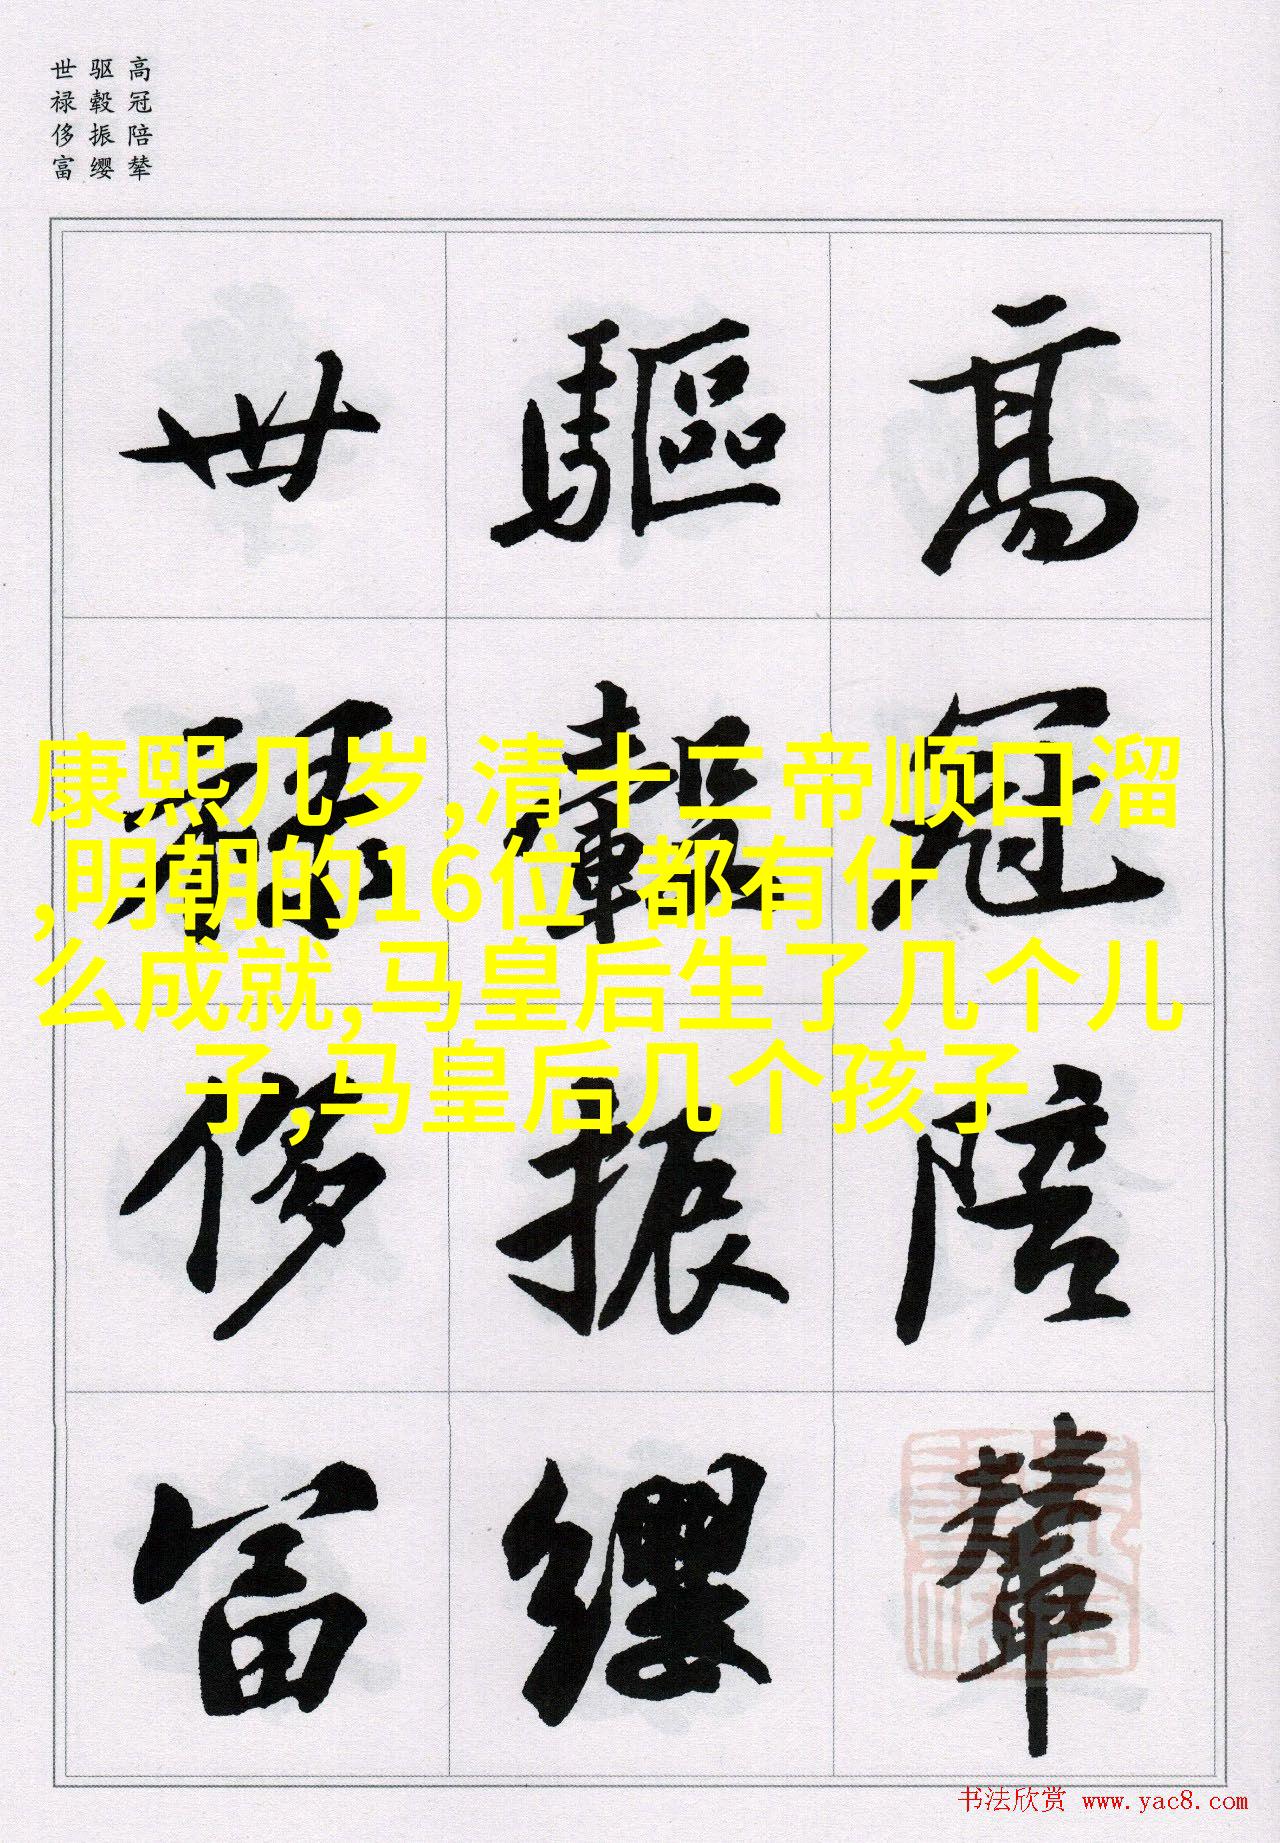 高冠陪辇
驱毂振缨
世禄侈富
高冠陪輦
驅轂振纓
世禄侈富
康熙几岁,清十二帝顺口溜
,明朝的16位 都有什
么成就,马皇后生了几个儿
子,马皇后几个孩子
书法欣赏 www.yac8.com